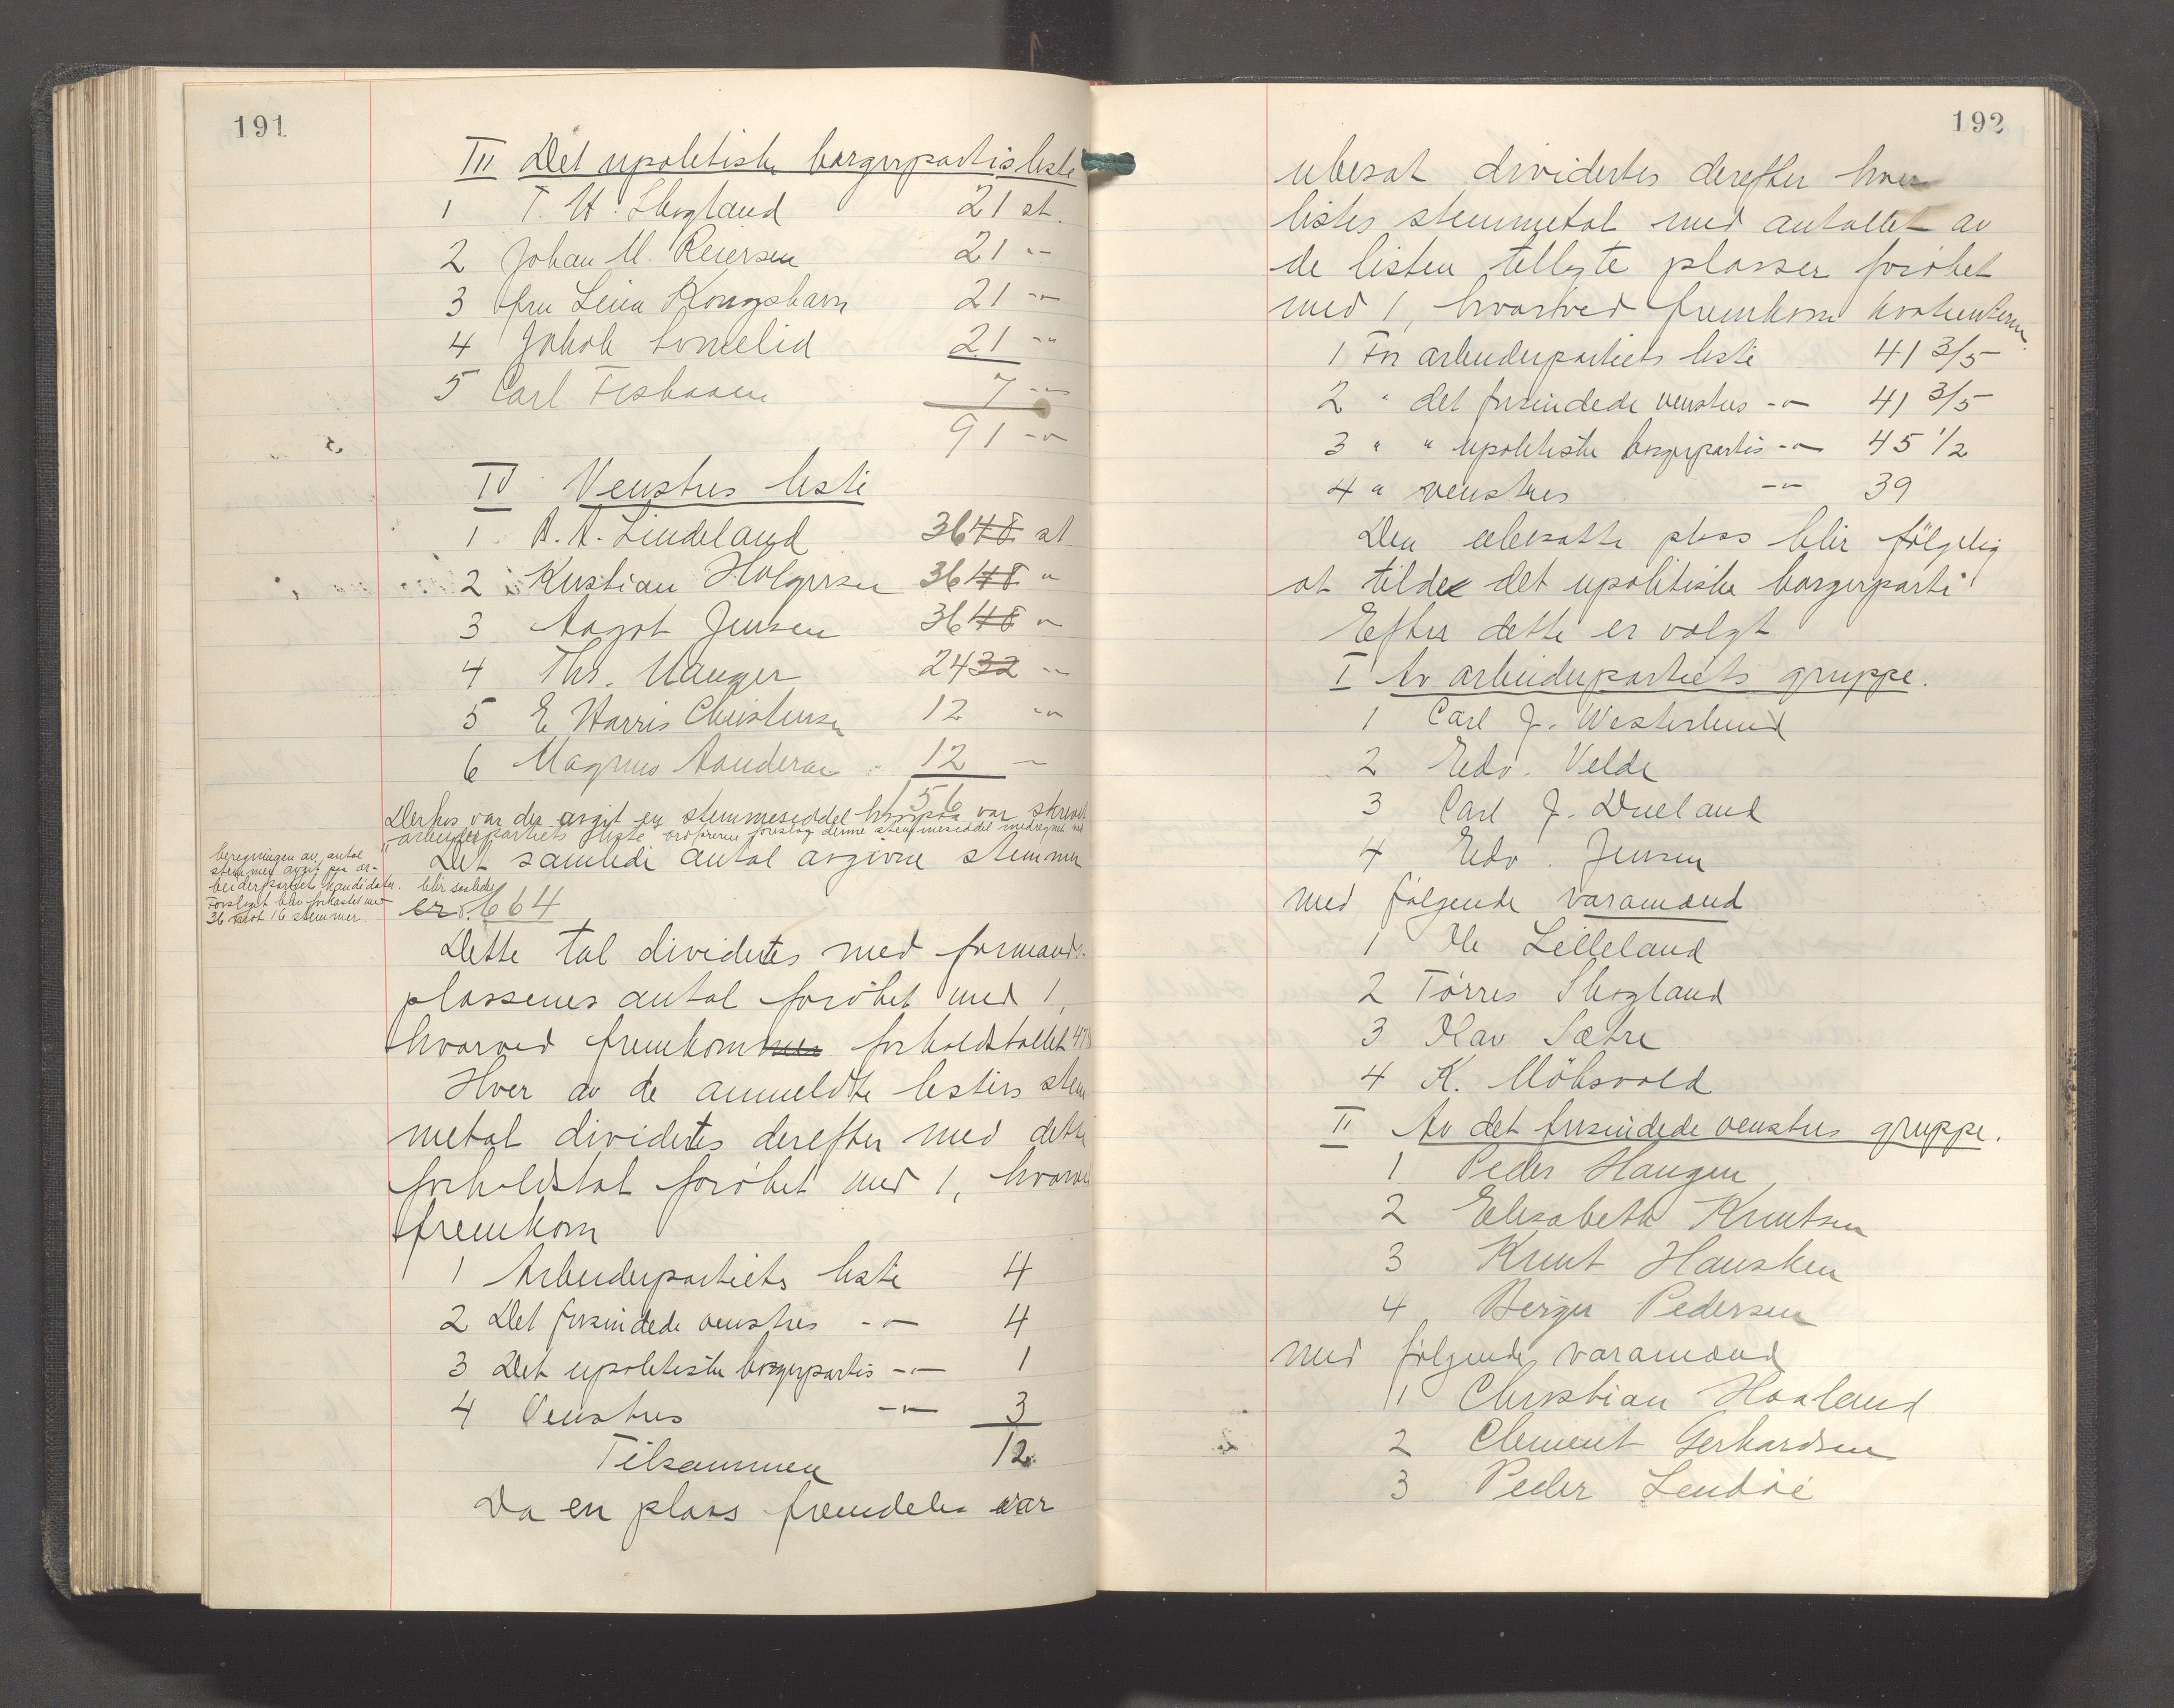 191
III Det upolitiske borgerpartis liste
1 T. H. Skogland 21 st.
2 Johan M. Reiersen 21 -"-
3 fru Lina Kongshavn 21 -"-
4 Jakob Lomelid 21 -"-
5 Carl 7 -"-
91 -"-
IV Venstres liste
1 A. A. Lindeland 36 48 st.
2 Kristian Holgersen 36 48 "
3 Aagot Jensen 36 48 "
4 Ths. Manger 24 32 -"-
5 E Harris Christensen 12 -"-
6 Magnus 12 -"-
156
Derhos var der avgit en stemmeseddel hvorpaa var skrevet
"arbeiderpartiets liste" ordføreren foreslog denne stemmeseddel medregnet ved
beregningen av antal
stemmer avgit paa ar-
beiderpartiets kandidater.
Forslaget blev forkastet med
36 mot 16 stemmer.
Det samlede antal avgivne stemmer
blir saaledes
er: 664
Dette tal divideres med formands-
plassenes antal forøket med 1,
hvorved fremkommer forholdstallet 47
Hver av de anmeldte listers stem
metal divideres derefter med dette
forholdstal forøket med 1, hvorved
fremkom
1 Arbeiderpartiets liste 4
2 Det frisindede venstres -"- 4
3 Det upolitiske borgerpartis -"- 1
4 Venstres -"- 3
Tilsammen 12
Da en plass fremdeles var
192
ubesat dividertes derefter hver
listes stemmetal med antallet av
de listen tillagte plasser forøket
med 1, hvorved fremkom kvotienterne
1 For arbeiderpartiets liste 41 3/5
2 " det frisindede venstres -"- 41 3/5
3 " " upolitiske borgerpartis -"- 45 1/2
4 " venstres -"- 39
Den ubesatte plass blir følgelig
at tildele det upolitiske borgerparti
Efter dette er valgt
I Av arbeiderpartiets gruppe.
1 Carl J. Westerlund
2 Edv. Velde
3 Carl J. Dueland
4 Edv. Jensen
med følgende varamænd
1 Ole Lilleland
2 Tørres Skogland
3 Olav Sætre
4 K. Möksvold
II Av det frisindede venstres gruppe.
1 Peder Haugen
2 Elisabeth Knutsen
3 Knut Hausken
4 Berger Pedersen
med følgende varamænd
1 Christian Haaland
2 Clement Gerhardsen
3 Peder Lendöe